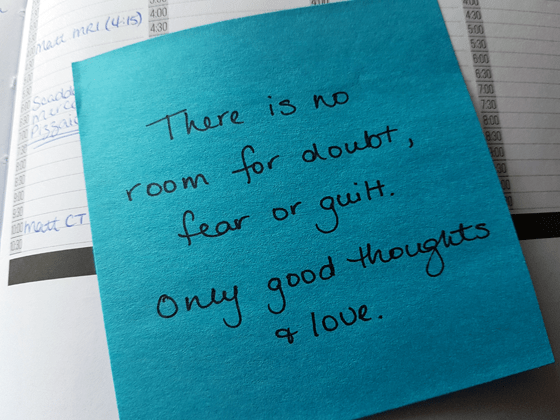 Matt MRI (4:15)
Matt CT
There is no
room for doubt,
fear or guilt.
Only good thoughts
& love.
4:00
4:30
5:30
6:00
6:30
7:00
7:30
8:00
8:30
9:00